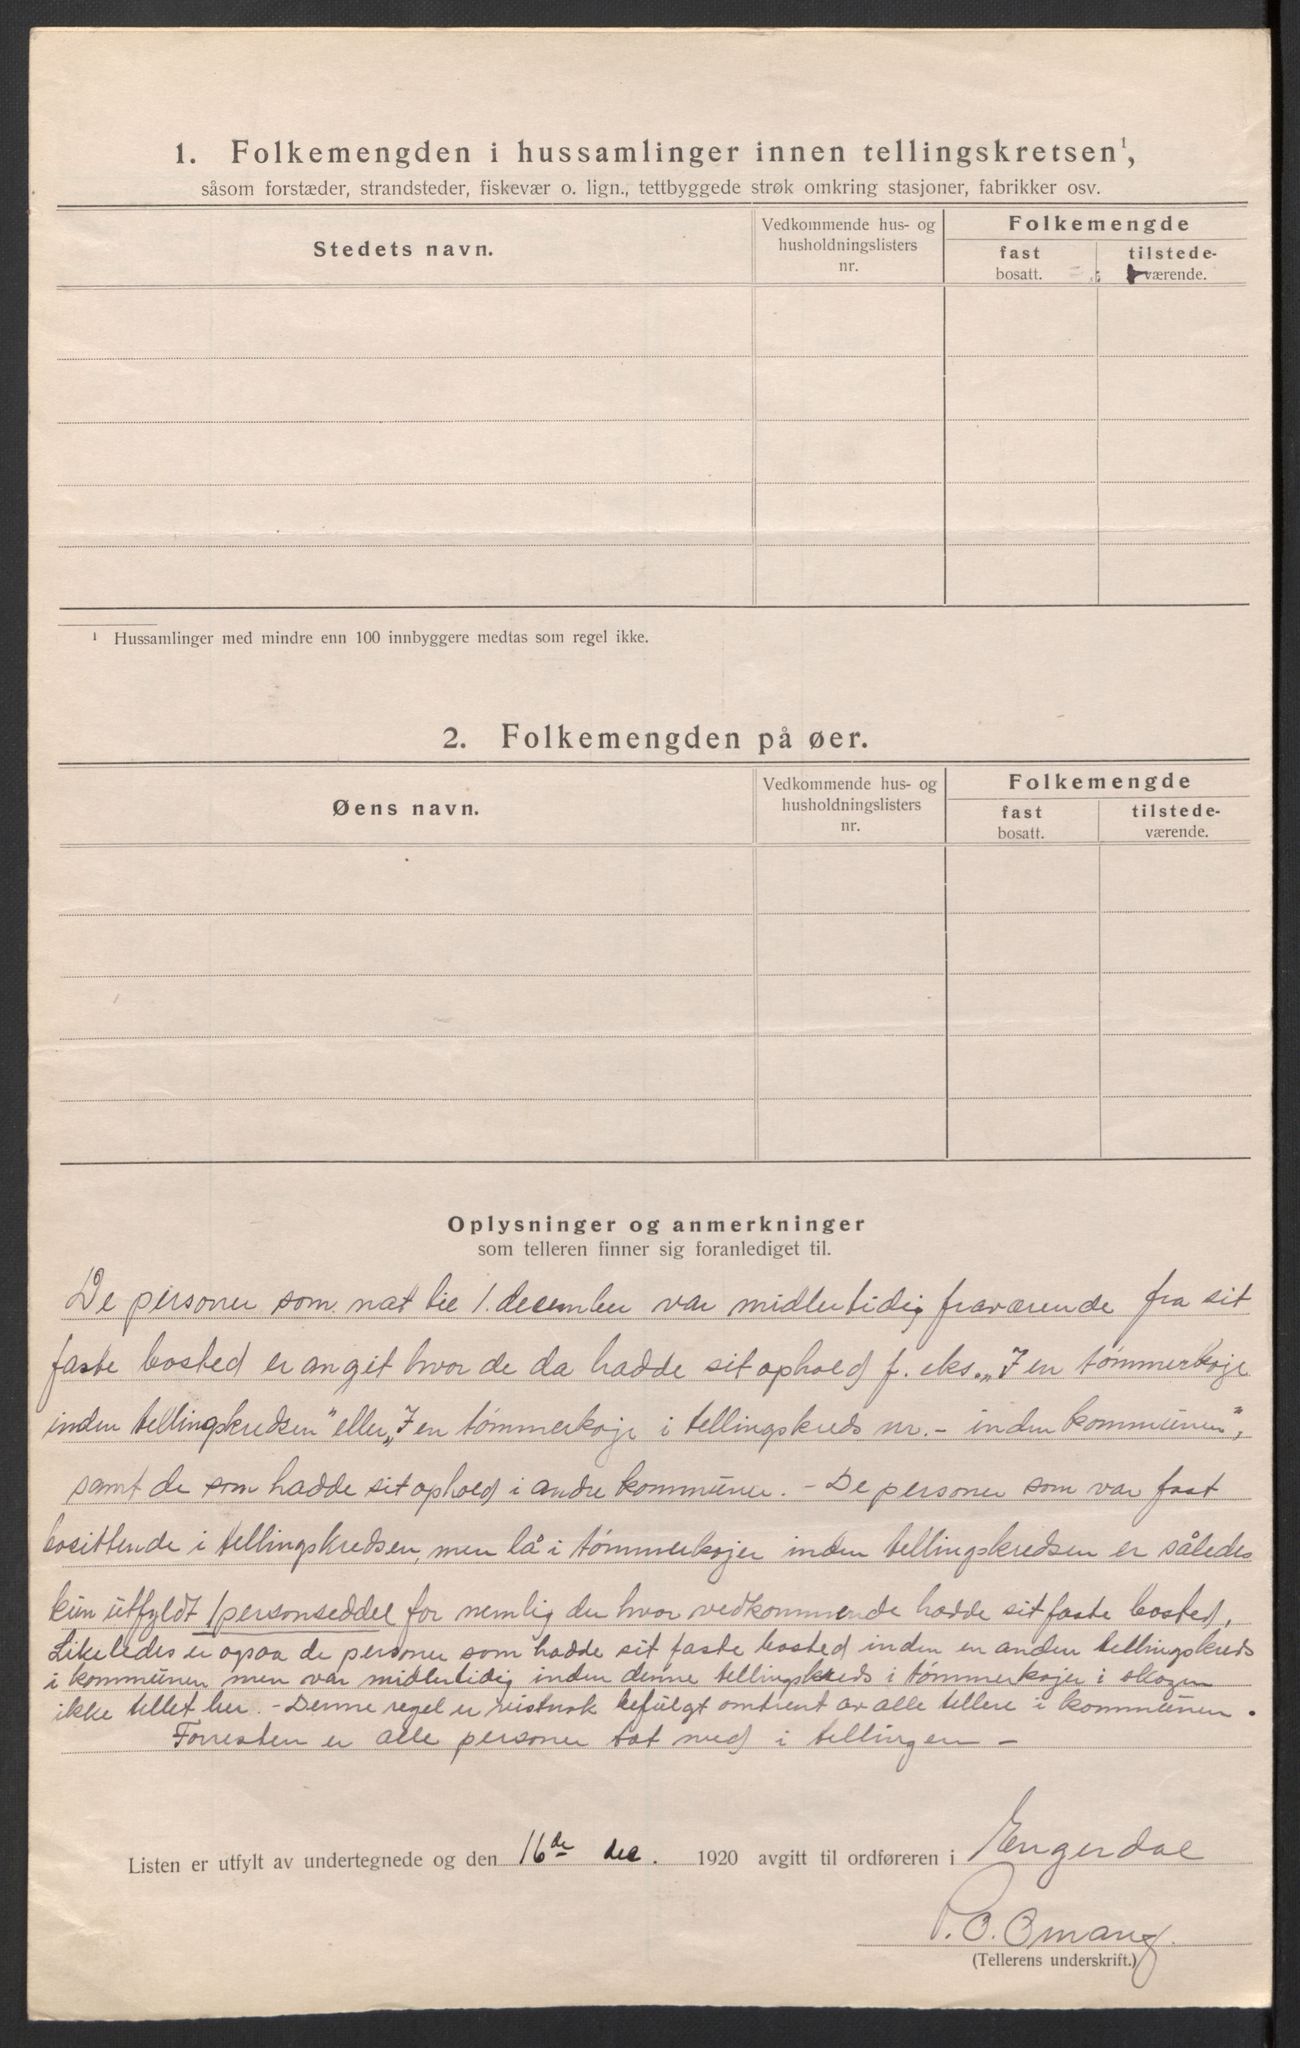 1. Folkemengden i hussamlinger innen tellingskretsen¹,
såsom forstæder, strandsteder, fiskevær o. lign., tettbyggede strøk omkring stasjoner, fabrikker osv.
Stedets navn.
Vedkommende hus- og
husholdningslisters
nr.
Folkemengde
fast
bosatt.
tilstede-
værende.
¹ Hussamlinger med mindre enn 100 innbyggere medtas som regel ikke.
2. Folkemengden på øer.
Øens navn.
Vedkommende hus- og
husholdningslisters
nr.
Folkemengde
fast
bosatt.
tilstede-
værende.
Oplysninger og anmerkninger
som telleren finner sig foranlediget til.
De personer som nat til 1. december var midlertidig fraværende fra sit
faste bosted er angit hvor de da hadde sit ophold f. eks. „I en tømmerkoje
inden tellingskredsen" eller „I en tømmerkoje i tellingskreds nr. - inden kommunen",
samt de som hadde sit ophold i andre kommuner. - De personer som var fast
bosittende i tellingskredsen, men lå i tømmerkojer inden tellingskredsen er således
kun utfyldt 1 personseddel for nemlig der hvor vedkommende hadde sit faste bosted.
Likeledes er ogsaa de personer som hadde sit faste bosted inden en anden tellingskreds
i kommunen men var midlertidig inden denne tellingskreds i tømmerkojer i skogen
ikke tellet her. - Denne regel er vistnok befulgt omtrent av alle tellere i kommunen.
Forresten er alle personer tat med i tellingen -
Listen er utfylt av undertegnede og den 16de dec. 1920 avgitt til ordføreren i Engerdal
P. O. Omang.
(Tellerens underskrift.)